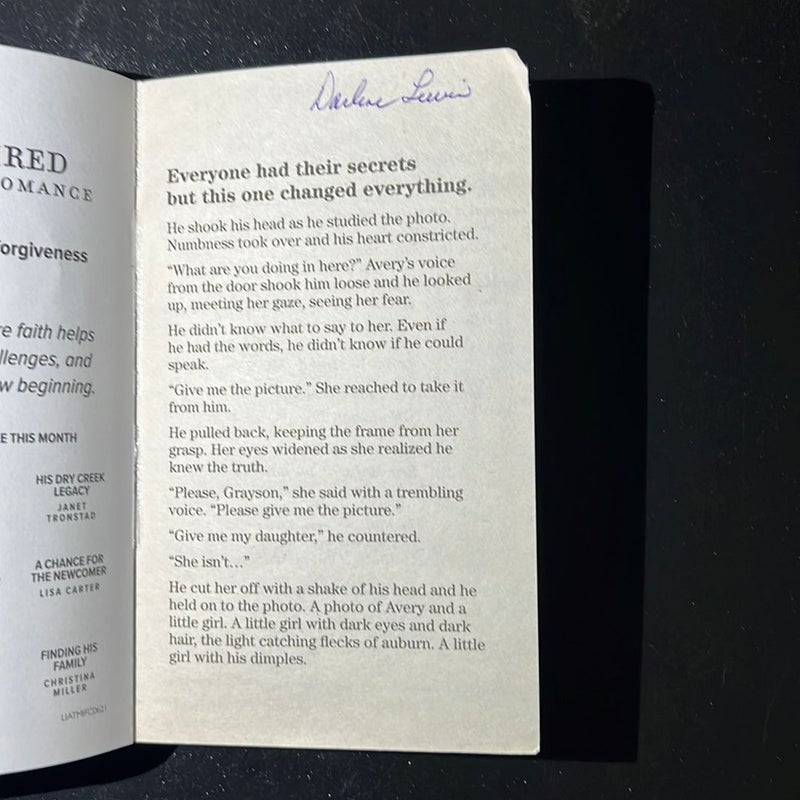 RED
OMANCE
orgiveness
e faith helps
llenges, and
w beginning.
E THIS MONTH
HIS DRY CREEK
LEGACY
JANET
TRONSTAD
A CHANCE FOR
THE NEWCOMER
LISA CARTER
FINDING HIS
FAMILY
CHRISTINA
MILLER
LIATMIFC0621
Darlene Lewis
Everyone had their secrets
but this one changed everything.
He shook his head as he studied the photo.
Numbness took over and his heart constricted.
“What are you doing in here?” Avery’s voice
from the door shook him loose and he looked
up, meeting her gaze, seeing her fear.
He didn’t know what to say to her. Even if
he had the words, he didn’t know if he could
speak.
“Give me the picture.” She reached to take it
from him.
He pulled back, keeping the frame from her
grasp. Her eyes widened as she realized he
knew the truth.
“Please, Grayson,” she said with a trembling
voice. “Please give me the picture.”
“Give me my daughter,” he countered.
“She isn’t…”
He cut her off with a shake of his head and he
held on to the photo. A photo of Avery and a
little girl. A little girl with dark eyes and dark
hair, the light catching flecks of auburn. A little
girl with his dimples.